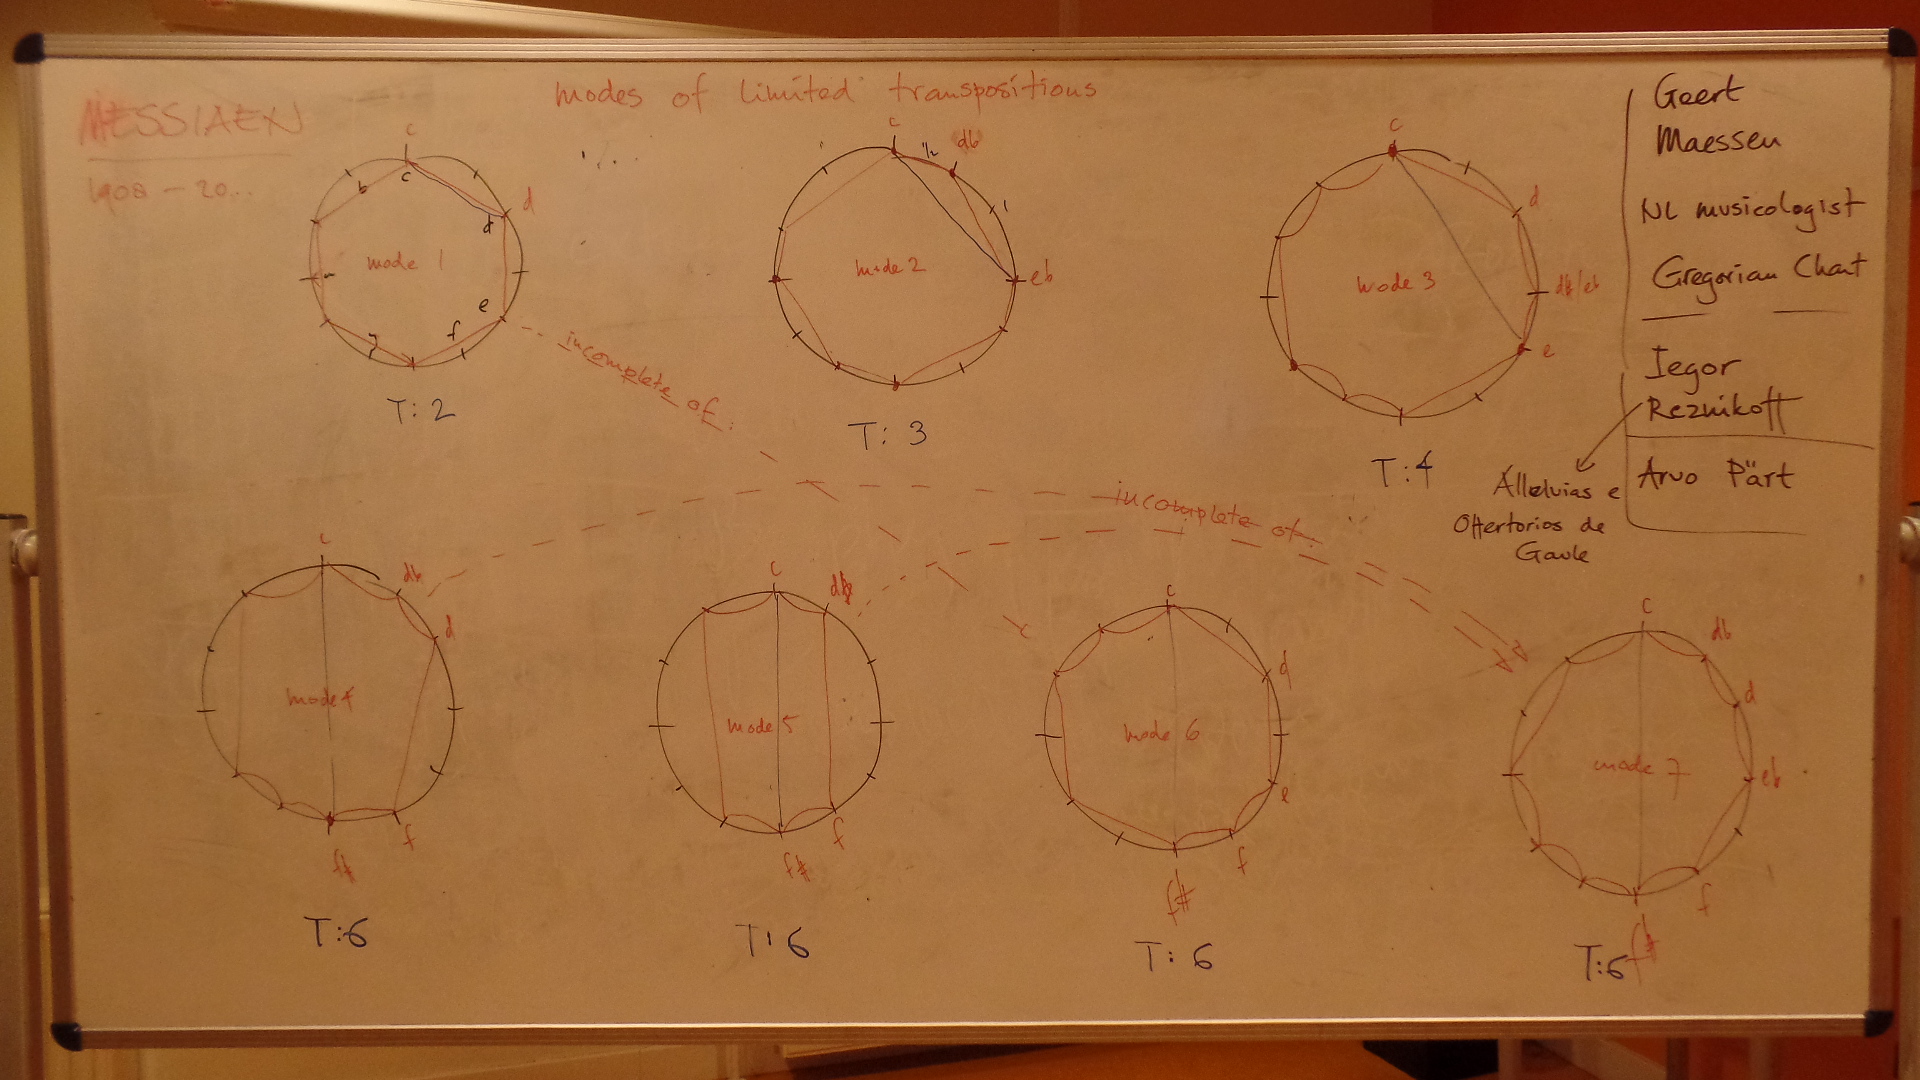 MESSIAEN
1908 - 20...
modes of limited transpositions
c
c
d
d
e
f
g
b
mode 1
T: 2
c
1/2
db
1
eb
mode 2
T: 3
c
d
d#/eb
e
mode 3
T: 4
incomplete of:
incomplete of:
c
db
d
f
f#
mode 4
T: 6
c
db
f
f#
mode 5
T: 6
c
d
e
f
f#
mode 6
T: 6
c
db
d
eb
f
f#
mode 7
T: 6
Geert
Maessen
NL musicologist
Gregorian Chant
Iegor
Reznikoff
Alleluias e
Offertorios de
Gaule
Arvo Pärt